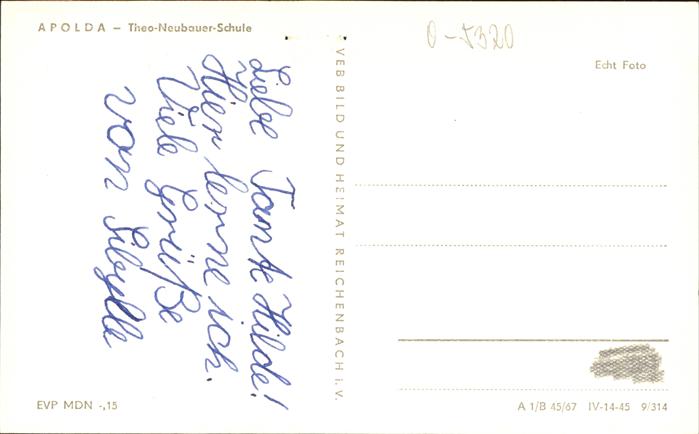 APOLDA – Theo-Neubauer-Schule
0-5320
Echt Foto
Liebe Tante Hilde!
Hier lerne ich.
Viele Grüße
von Sibylle
VEB BILD UND HEIMAT REICHENBACH i. V.
EVP MDN -,15
A 1/B 45/67 IV-14-45 9/314